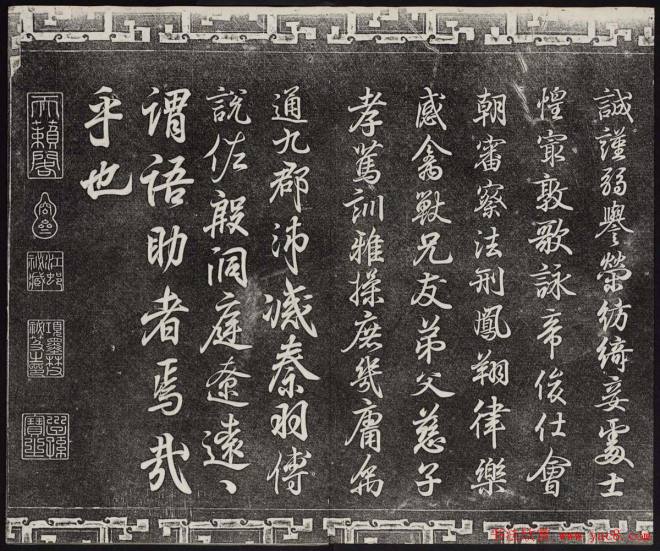 誠謹弱譽榮紡綺妾處士
惶寂敦歌詠帝俊仕會
朝審察法刑鳳翔律樂
感禽獸兄友弟父慈子
孝篤訓雅操庶幾庸
通九郡沛滅秦羽傅
說佐殷洞庭遼遠
謂語助者焉哉
乎也
天籟閣
項墨林
子孫
寶
www.yac8.com